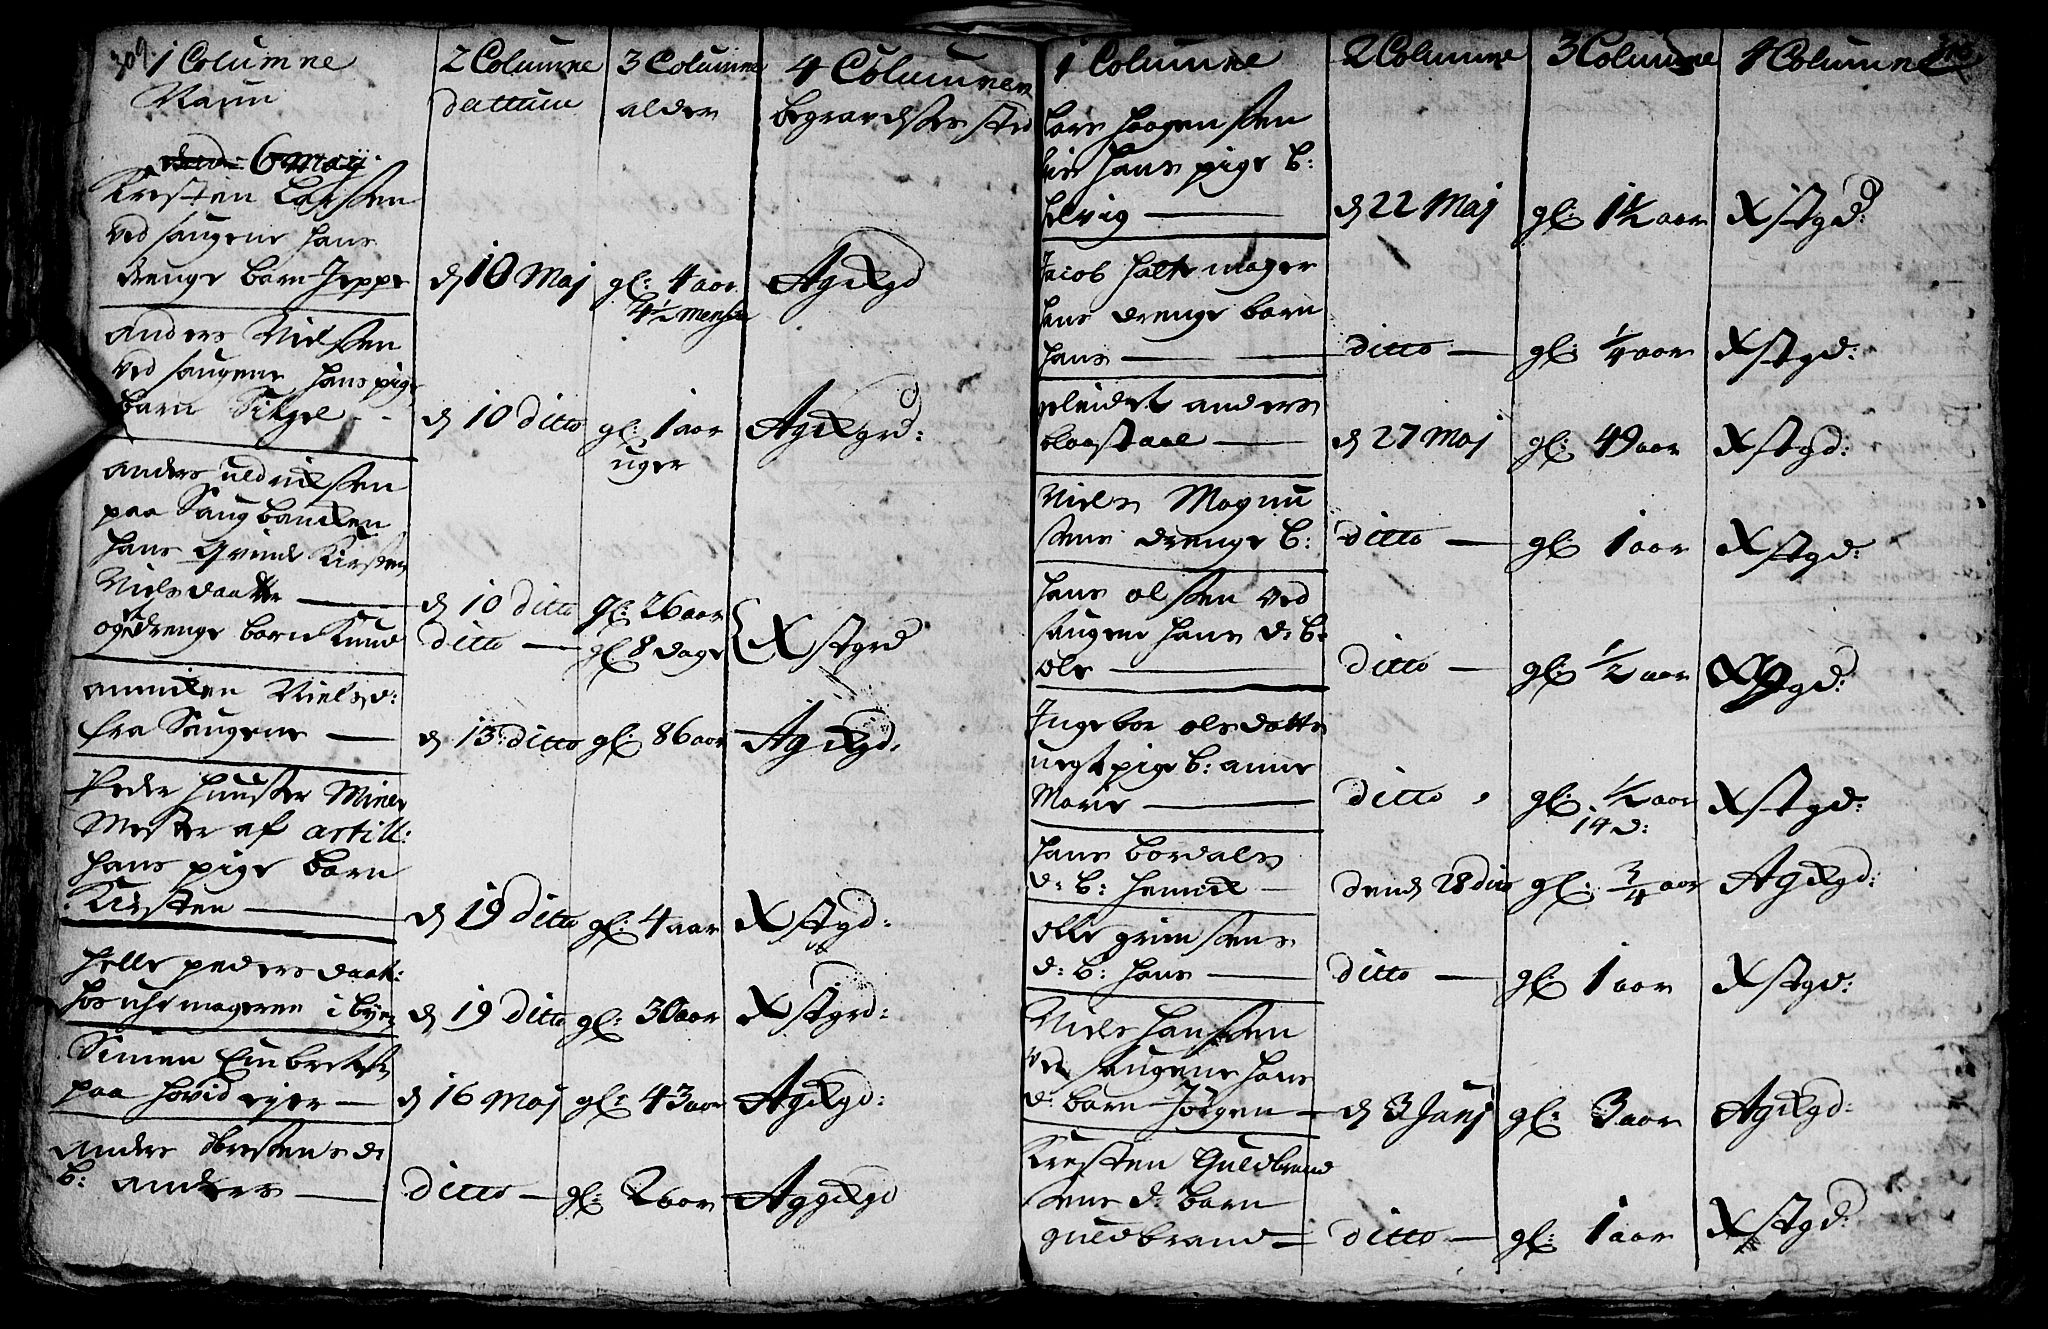 309.
1 Columne
Nafn
2 Columne
dattum
3 Columne
alder
4 Columnen
begravelsses sted
6 Maij
Kresten Larssen
ved saugene hans
drenge barn Jeppe
d 10 Maj
gl: 4 aar
4½
Ag:Kgd
anders Nielssen
ved saugene hans pige
barn Sitzel
d 10 ditto
gl: 1 aar
uger
Ag:Kgrd:
anders uldrickssen
paa Saugbancken
hans Qvinde Kirsten
Niels daatter
og drenge barn Knud
d 10 ditto gl: 26 aar
ditto — gl: 8 dage
X stgrd
annicken Nielsd:
fra Saugene —
d 13: ditto gl: 86 aar
Ag:Kgd.
Peder Hunster Miner
Mester af artill:
hans pige barn
Kirsten —
d 19 Ditto gl: 4 aar
X stgd:
Helle peders daat:
hos uhrmageren i byen
d 19 Ditto gl: 30 aar
X stgrd:
Simen Embretss
paa hovid øyer —
d 16 Maj gl: 43 aar
Ag:Kgd:
anders d
B: anders —
ditto — gl: 2 aar
Ag:Kgd
1 Columne
2 Columne
3 Columne
4 Columne
Lars Haagenssen
hans pige B:
—
d 22 Maj
gl: 1½ aar
X stgd:
Jacob Hattemager
hans drenge barn
Hans —
ditto —
gl: ¼ aar
X stgd:
anders
—
d 27 Maj
gl: 49 aar
X stgd:
Niels Magnu
ssens drenge B:
ditto —
gl: 1 aar
X stgd:
Hans olssen ved
saugene hans d: B:
ole —
ditto —
gl: ½ aar
Ingebor olsdatter
uegt pige B: anne
Marie —
ditto
gl: ½ aar
14 d:
X stgd:
Hans bordals
d: B: Henrick —
dend 28 dito
gl: ¾ aar
Ag:Kgd:
olle grimssens
d: B: Hans —
ditto —
gl: 1 aar
X stgd:
Niels Hanssen
ved saugene hans
d: barn Jörgen —
d 3 Junj
gl: 3 aar
Ag:Kgd:
Kresten Guldbrand
sens d: barn
guldbrand —
ditto —
gl: 1 aar
X stgd: